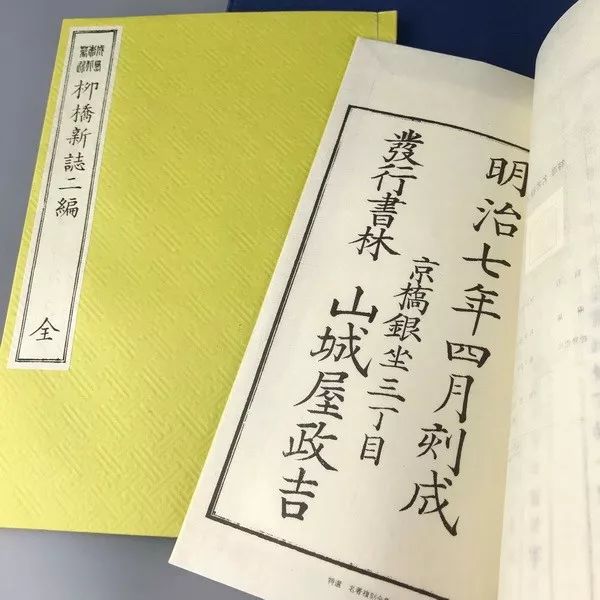 柳橋新誌二編
全
明治七年四月刻成
京橋銀坐三丁目
發行書林 山城屋政吉
特選 名著複刻全